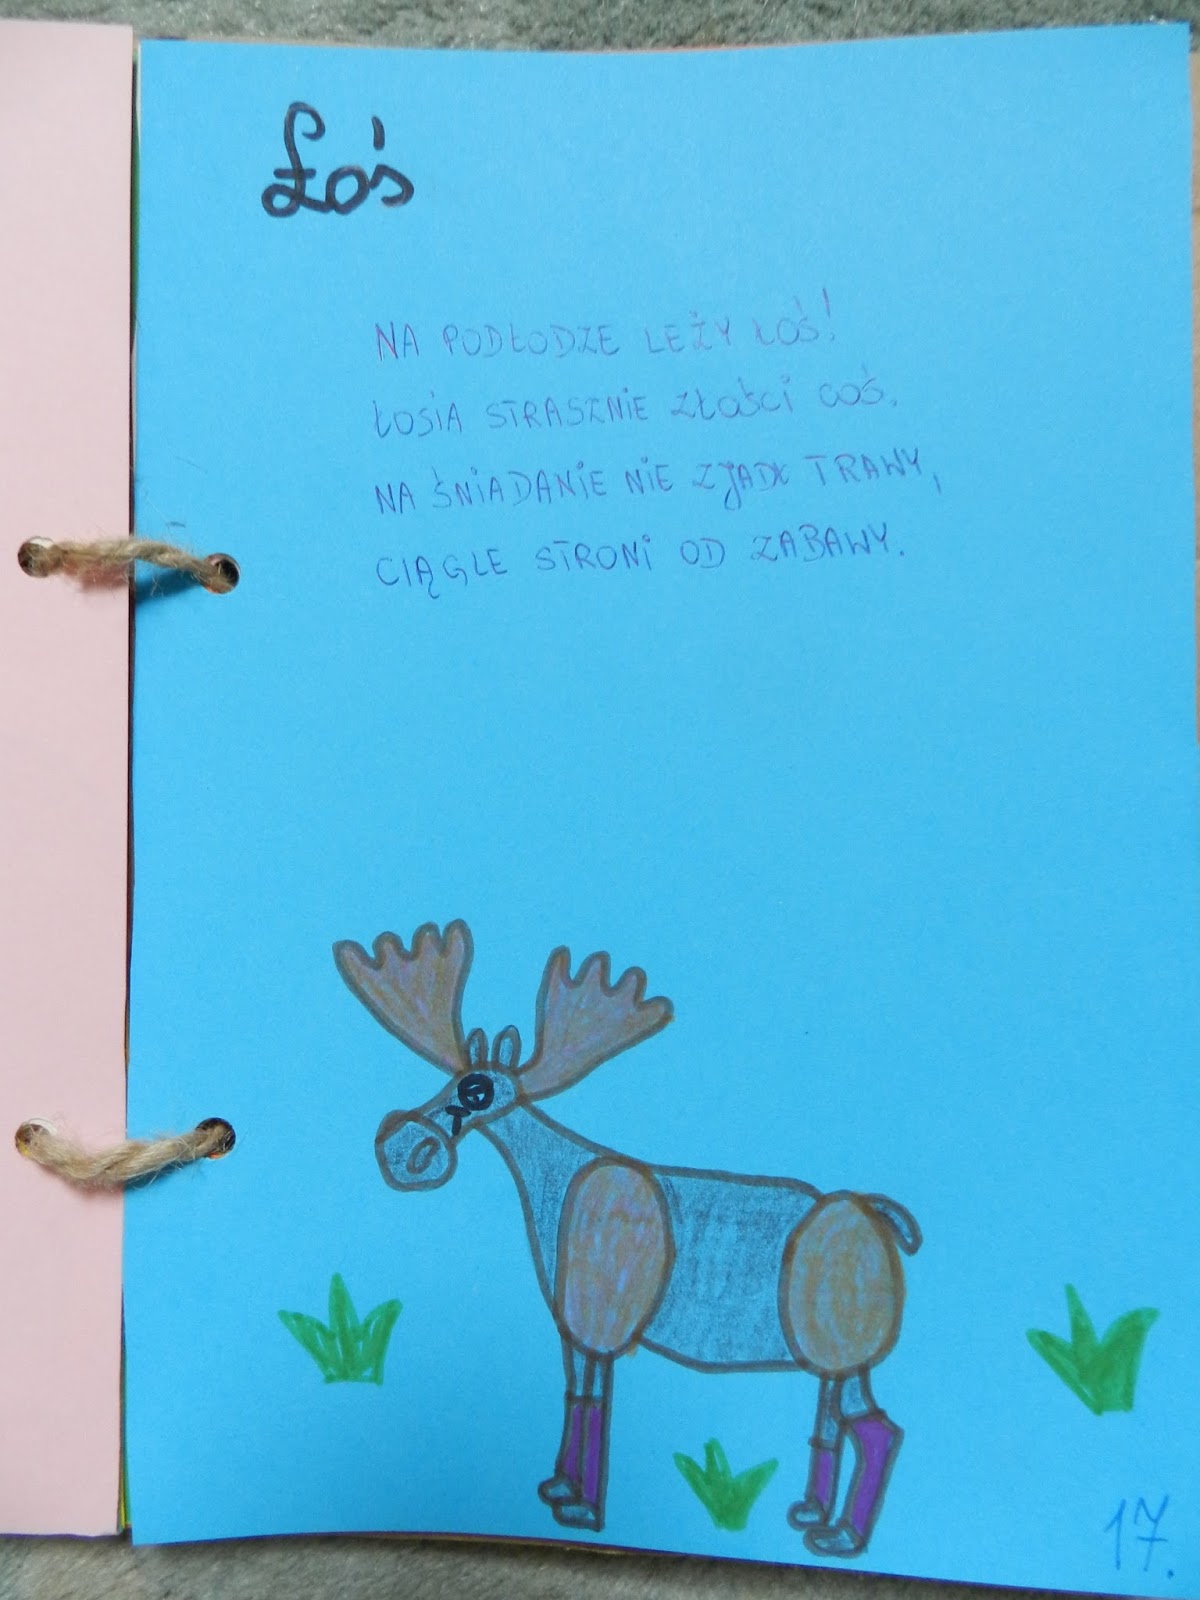 Łoś
NA PODŁODZE LEŻY ŁOŚ!
ŁOSIA STRASZNIE ZŁOŚCI COŚ.
NA ŚNIADANIE NIE ZJADŁ TRAWY,
CIĄGLE STRONI OD ZABAWY.
17.